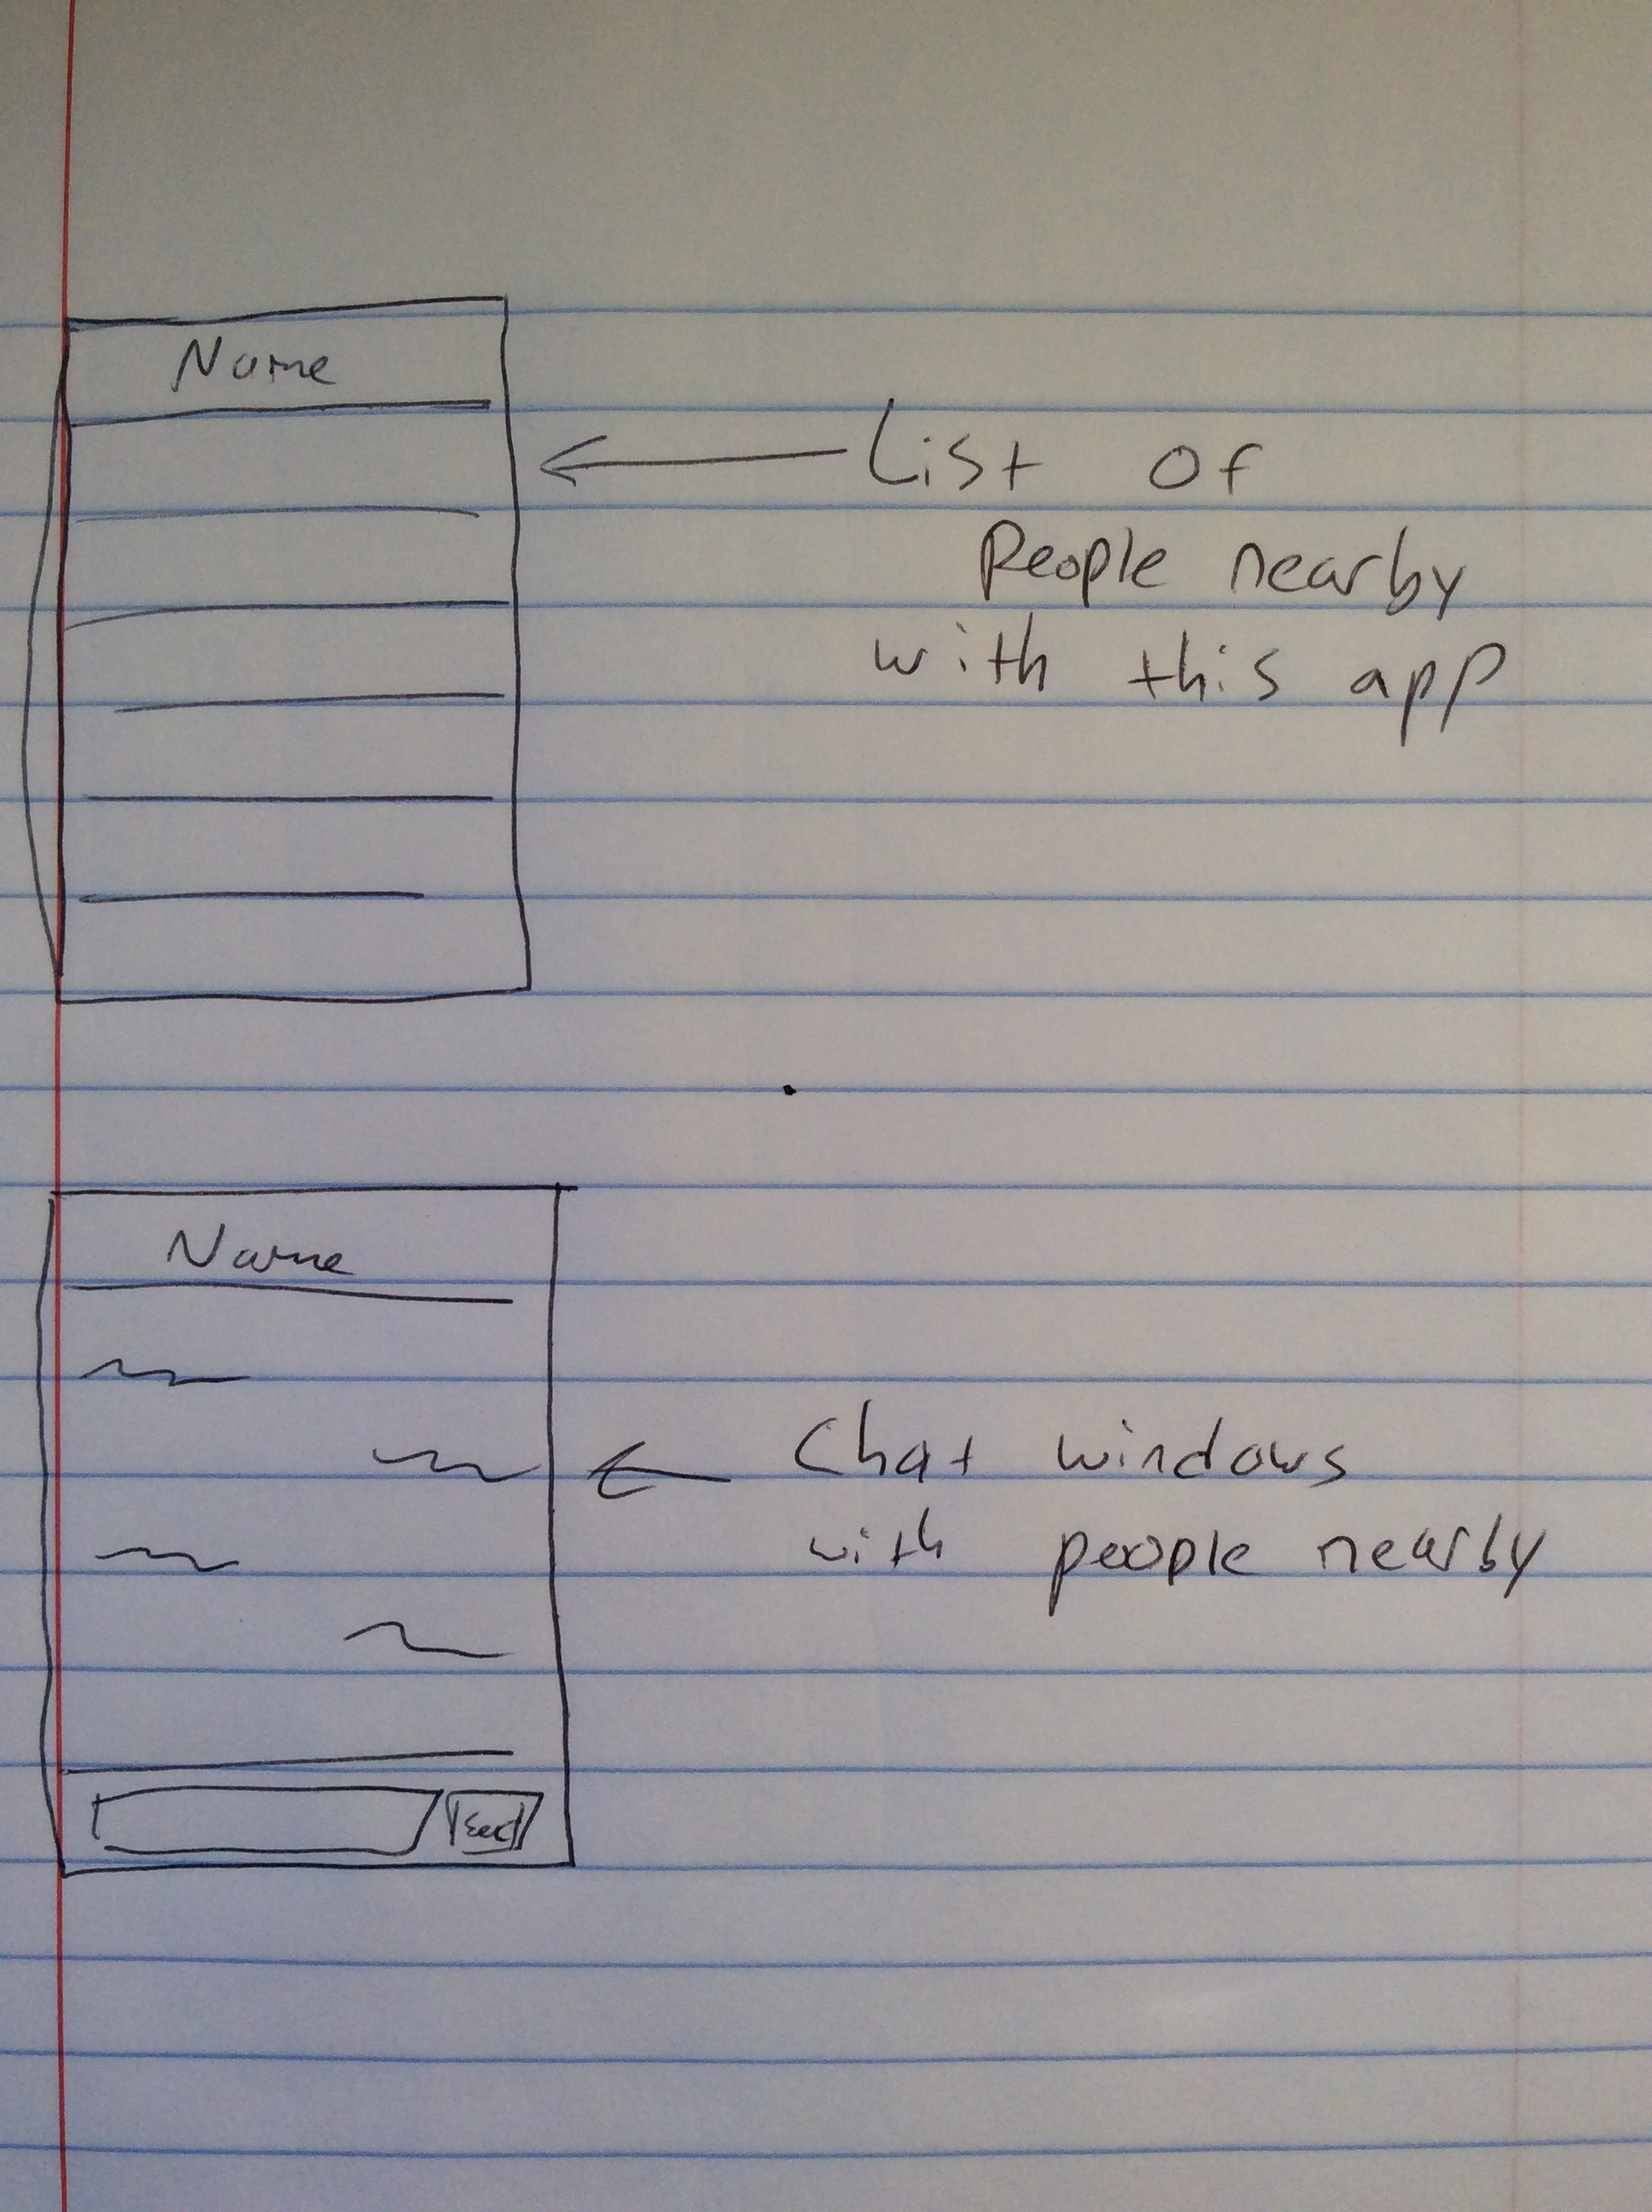 Name
List of
People nearby
with this app
Name
Chat windows
with people nearby
Send